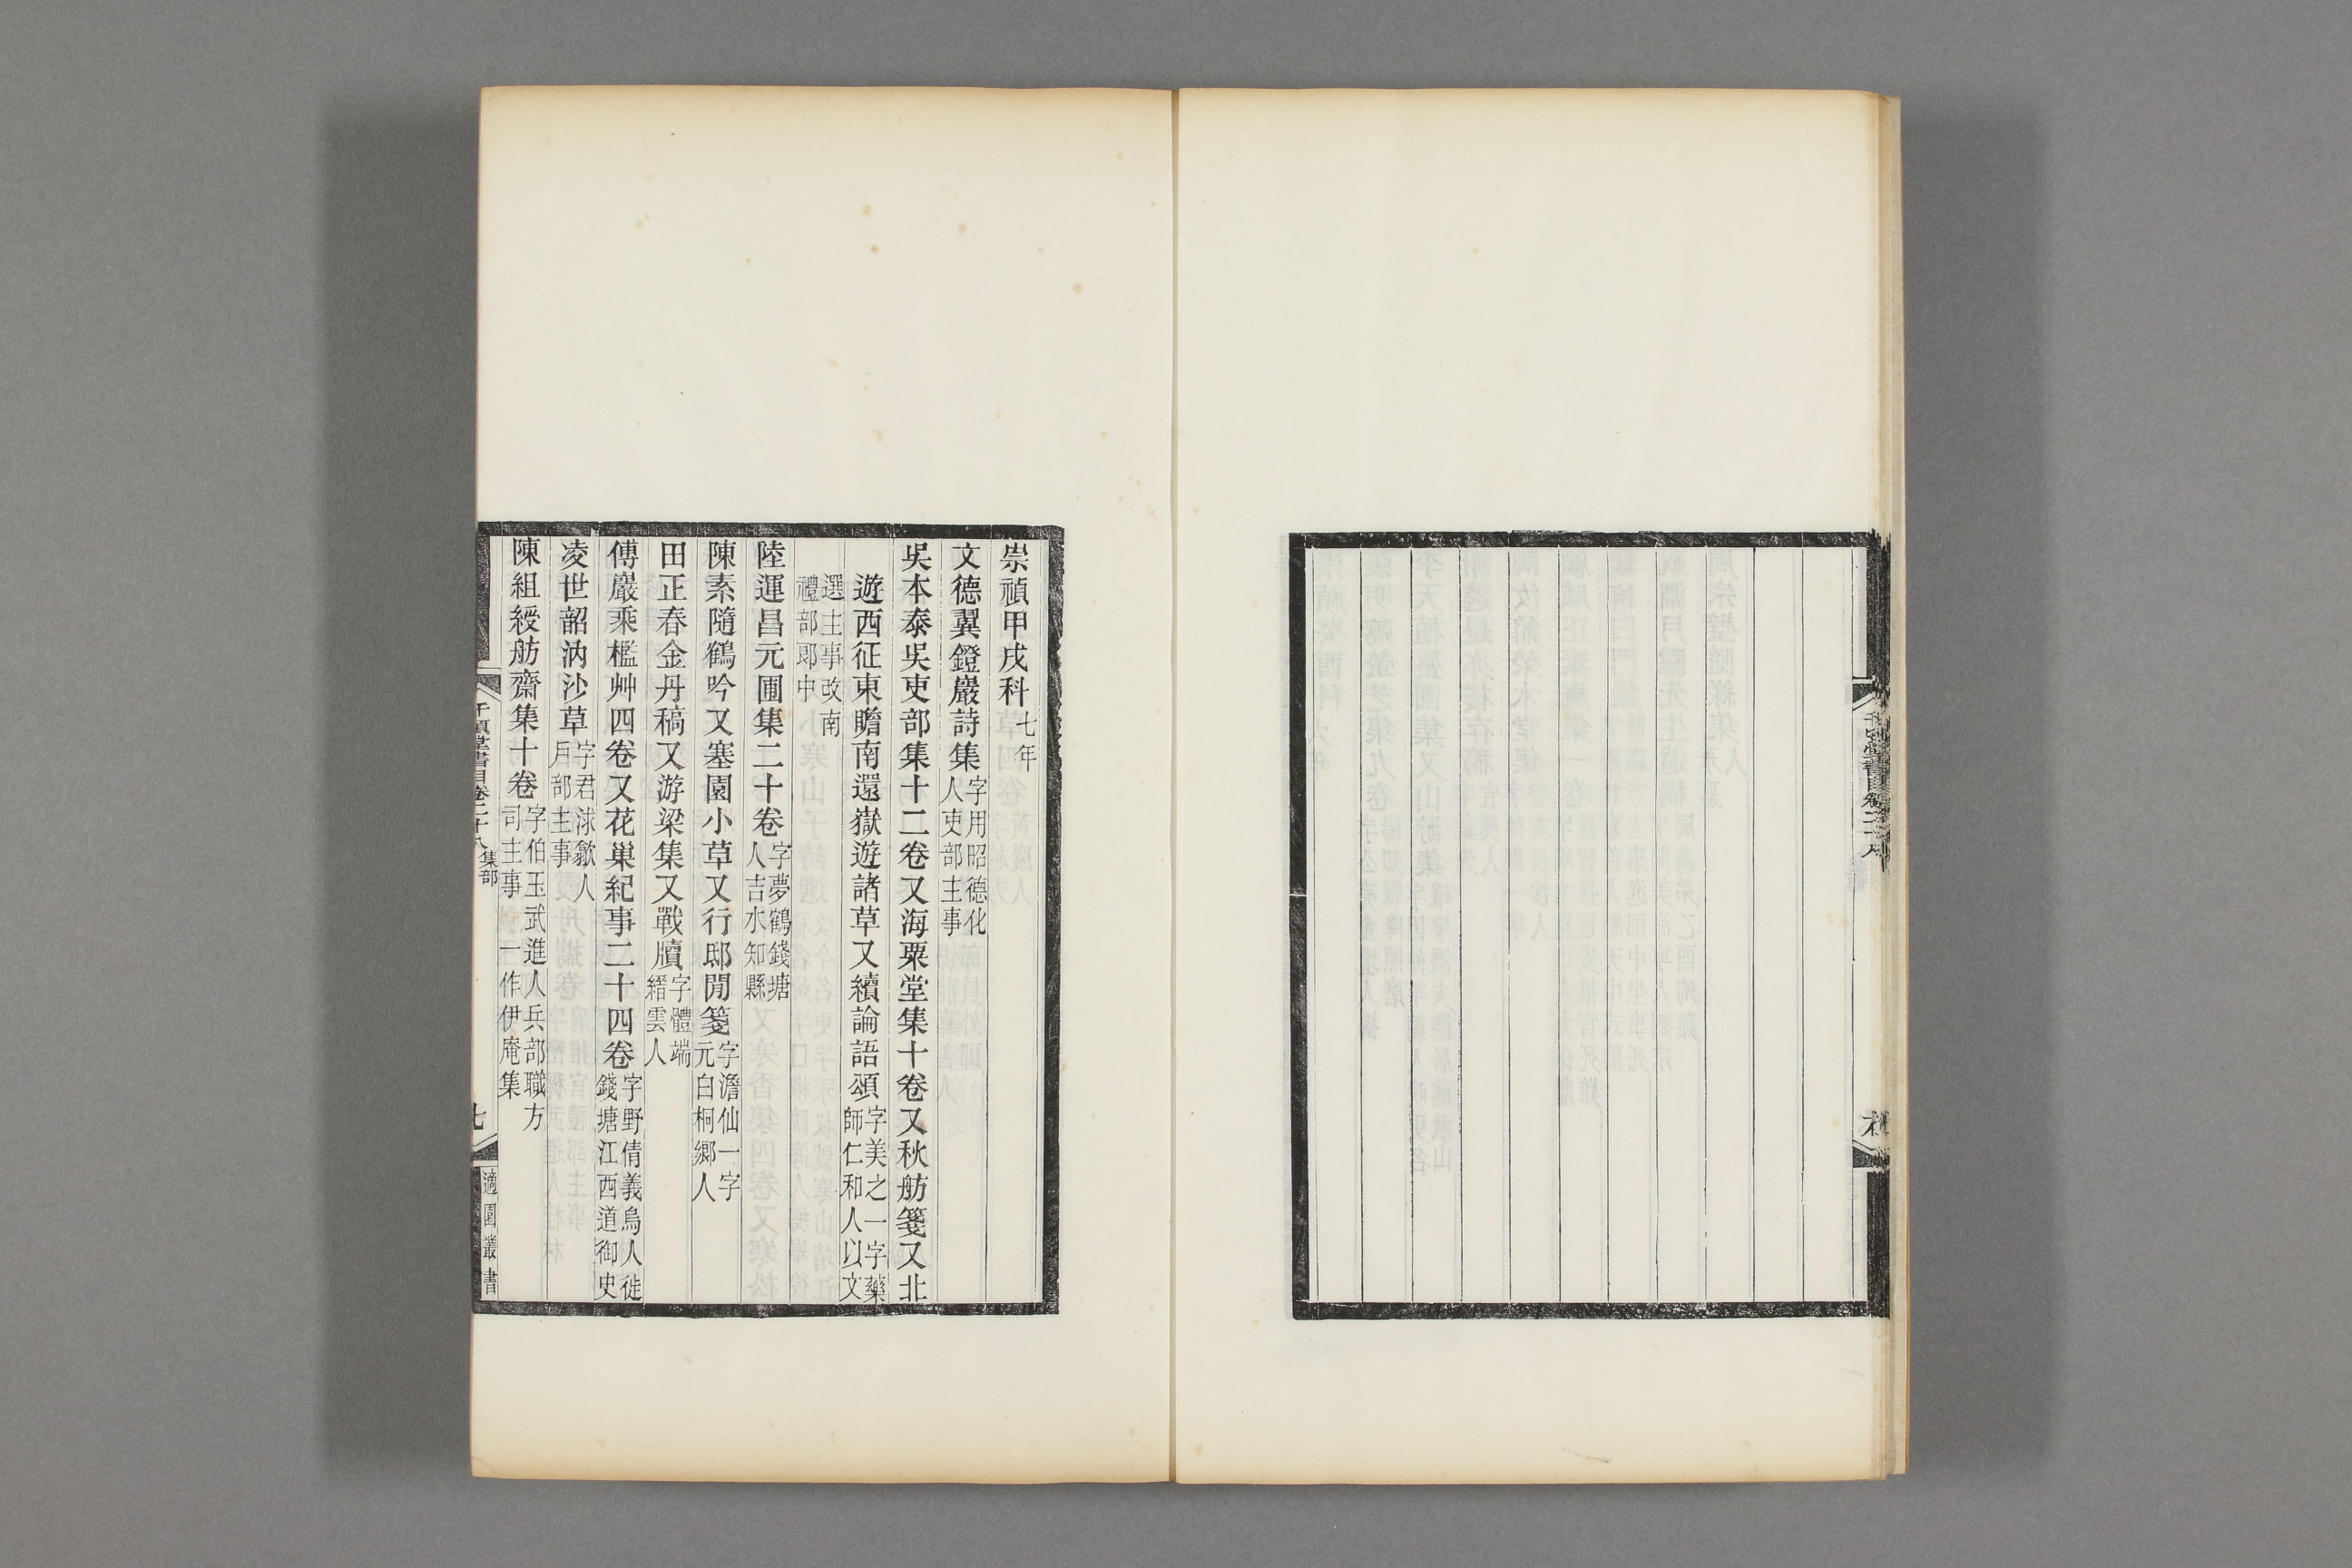 崇禎甲戌科七年
文德翼鐙巖詩集字用昭德化人吏部主事
吳本泰吳吏部集十二卷又海粟堂集十卷又秋舫箋又北
遊西征東瞻南還嶽遊諸草又續論語頌字美之一字藥師仁和人以文
選主事改南禮部郎中
陸運昌元圃集二十卷字夢鶴錢塘人吉水知縣
陳素隨鶴吟又塞園小草又行邸閒箋字澹仙一字元白桐鄉人
田正春金丹稿又游梁集又戰牘字體端縉雲人
傅巖乘檻艸四卷又花巢紀事二十四卷字野倩義烏人徙錢塘江西道御史
凌世韶汭沙草字君浗歙人戶部主事
陳組綬舫齋集十卷字伯玉武進人兵部職方司主事 一作伊庵集
千頃堂書目卷二十八 集部
七
適園叢書